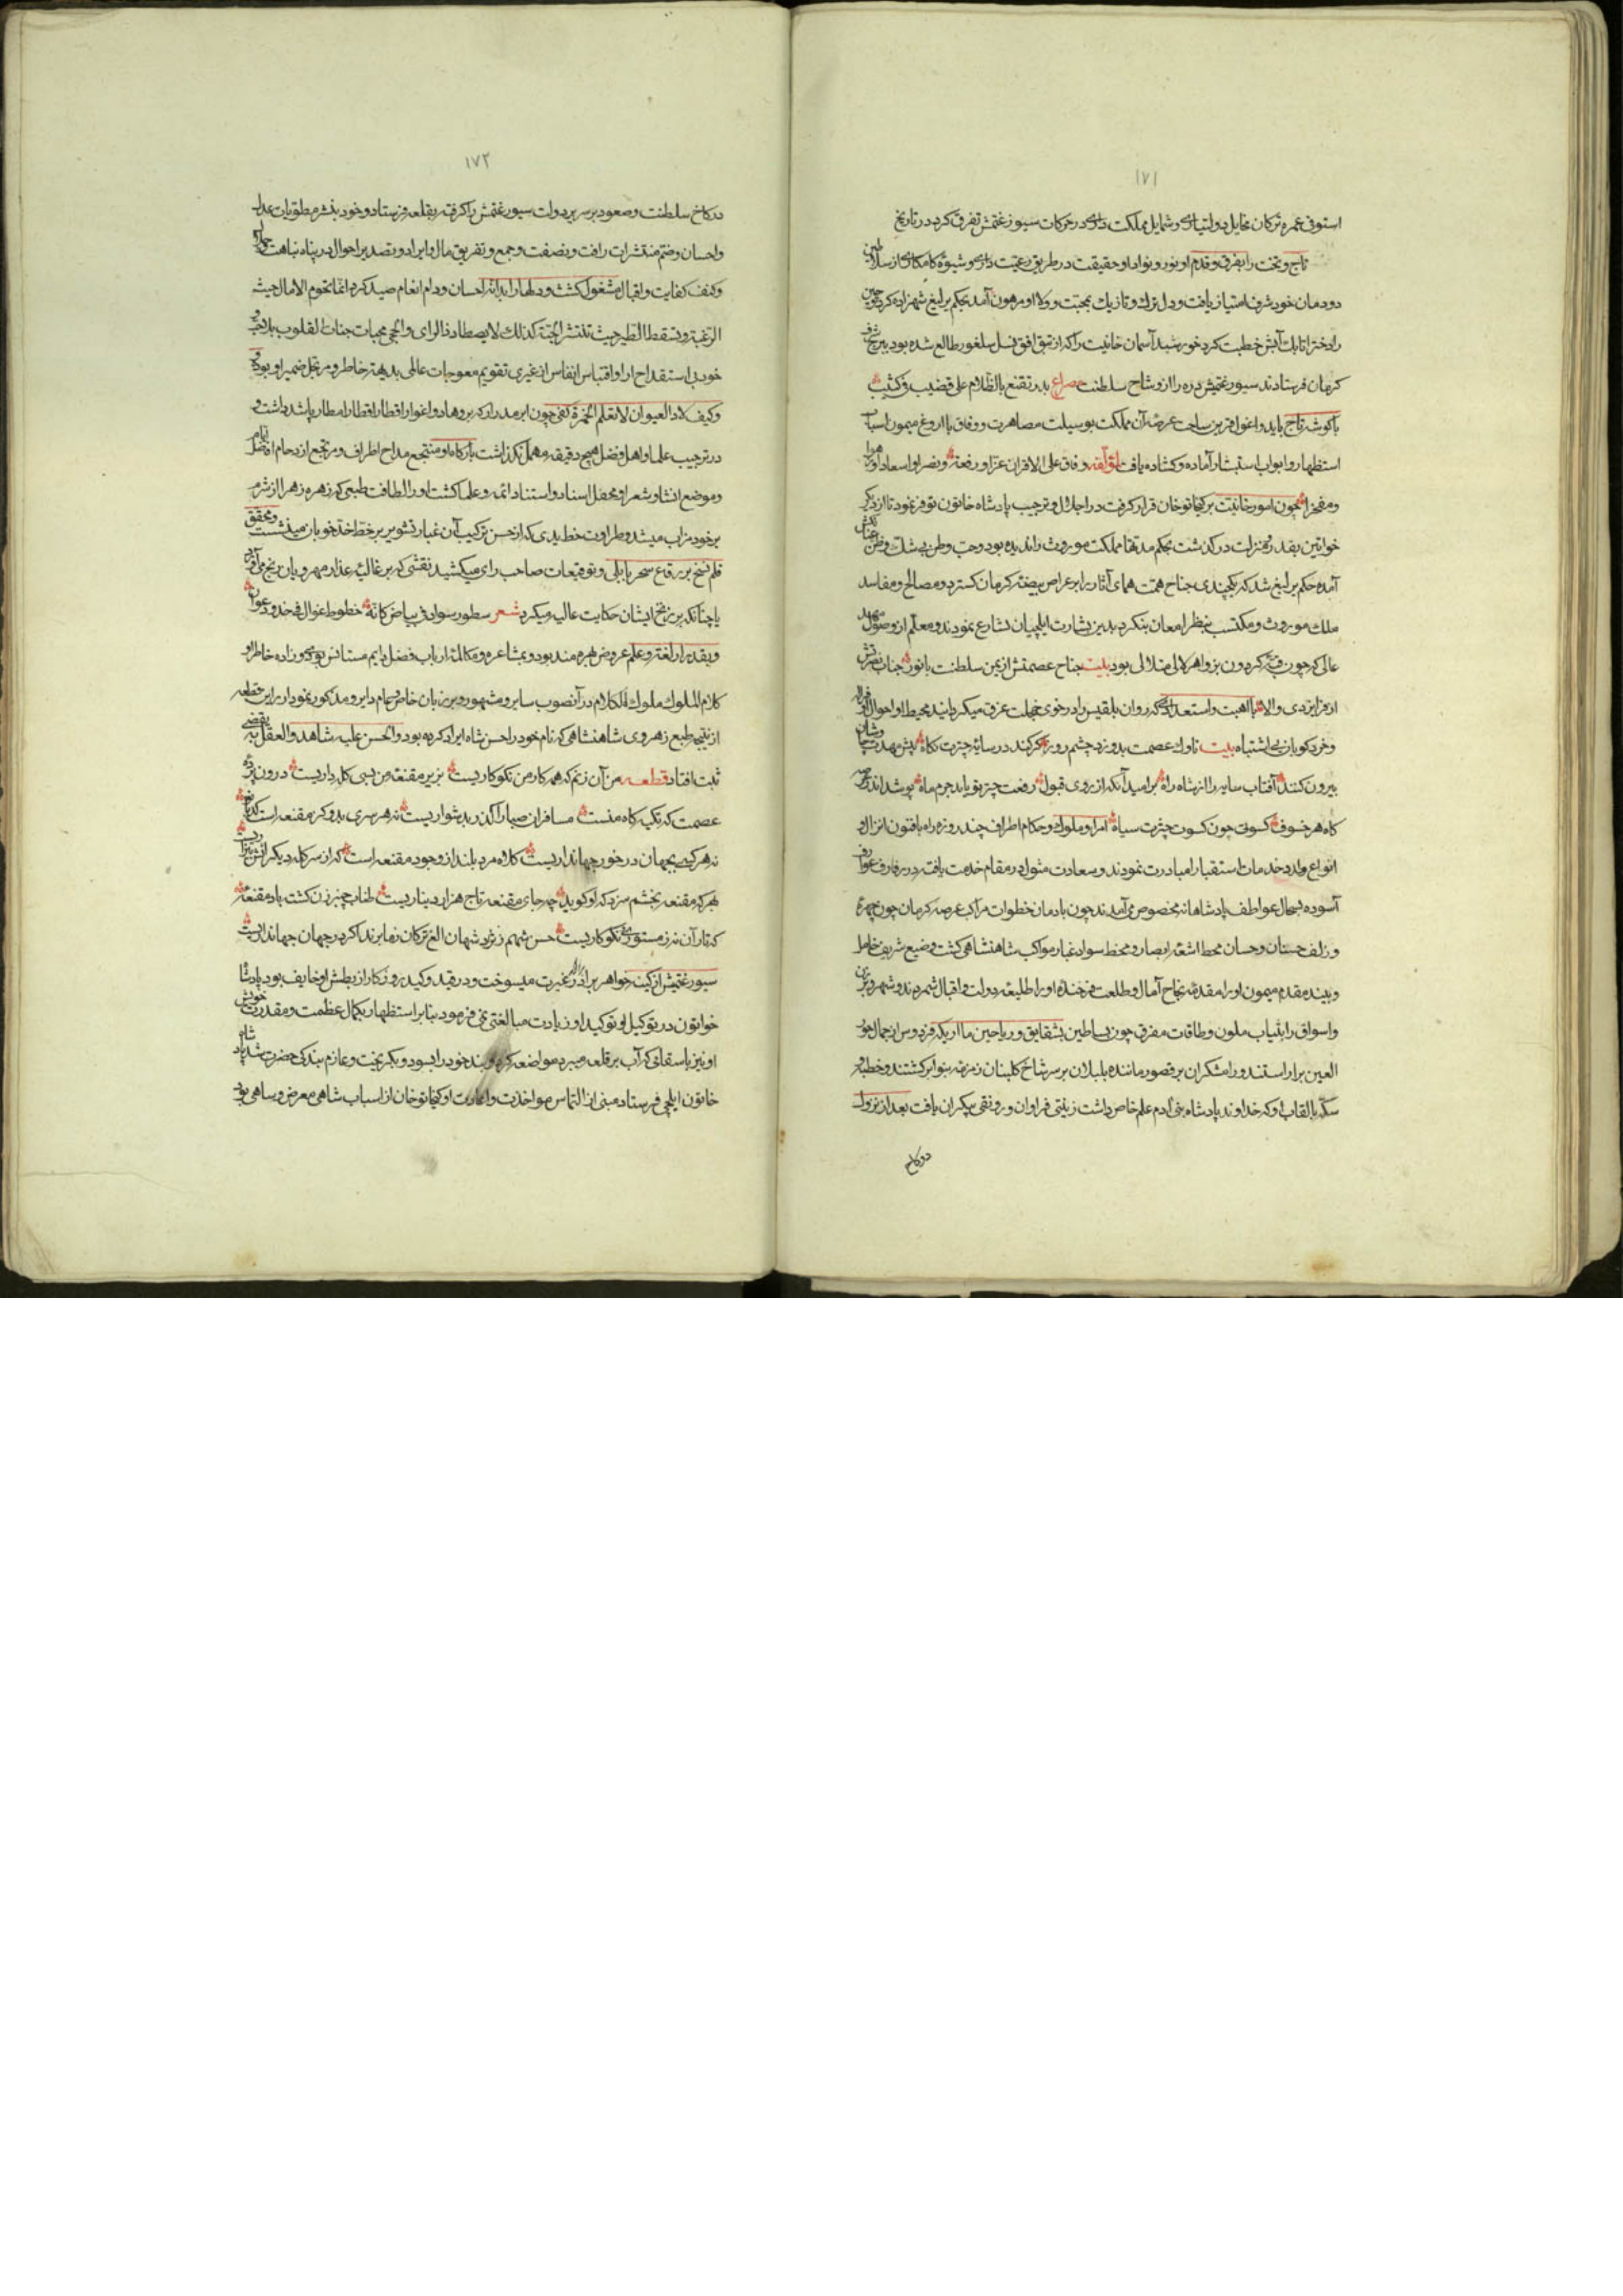 ۱۷۱
استوفی عمره ترکان مخایل دولتیاری و شمایل مملکت داری در حرکات سیورغتمش تفرق کرد در تاریخ
تاج و تخت را بفرق و قدم او نور و نوا داد و حقیقت در طریق رعیت داری و شیوه کامکاری از سلاطین
دودمان خود شرف امتیاز یافت و دل ترک و تازیک بمحبت و ولاء او مرهون آمد بحکم یرلیغ شهزاده کردوجین
را دختر اتابک آبش خطبت کرد خورشید آسمان خانیت را که از تتق افق نسل سلغور طالع شده بود ببرج شرف
کرمان فرستادند سیورغتمش دره را از وشاح سلطنت مصراع بدر تقنع بالظلام علی قضیب فی کثیب
با کوشه تاج باید و اغول قرین ساحت عرصه آن مملکت بوسیلت مصاهرت و وفاق با اروغ میمون اسباب
استظهار و ابواب استبشار آماده و کشاده یافت لمؤلفه وفاق علی الاقران عزا و رفعة ونصرا و اسعادا
و مفخرا چون امور خانیت بر کیخاتو خان قرار گرفت در اجلال و ترحیب پادشاه خاتون توفر نمود تا از دیگر
خواتین بقدر و منزلت درگذشت بحکم مدتها مملکت موروث را ندیده بود و حب وطن بی شک و ظن
آمده حکم یرلیغ شد که یکچندی جناح همت همای آثار را بر عراص بیضه کرمان کسترد و مصالح و مفاسد
ملک موروث و مکتسب بنظر امعان بنکرد بدین بشارت ایلچیان تسارع نمودند و معلم از وصول مهد
عالی که چون قبه گردون بزواهر لالی متلالی بود بیت جناح عصمتش از یمن سلطنت بانور جناب
از فر ایزدی والا با اهبت و استعدادی که روان بلقیس را در خوی خجلت عرق میکردانید محیط او احوال
و خرد گویان بی اشتباه بیت ناوک عصمت بدوزد چشم روز کر کند در سایه چترت نگاه پیش مهدت
بیرون کنند آفتاب سایه را از شاه راه بر امید آنکه از روی قبول رفعت چتر تو یابد جرم ماه پوشد اندر
گاه هر خسوف کسوتی چون کسوت چترت سیاه امرا و ملوک و حکام اطراف چند روزه راه با فنون انزال و
انواع خدمات استقبال را مبادرت نمودند و سعادت مثول در مقام خدمت یافته در
آسوده بسجال عواطف پادشاهانه مخصوص می آمدند چون بادمان خطوات مراکب عرصه کرمان چون چهره
و زلف حسنان و حسان محط اشعه ابصار و محط سواد غبار مواکب شاهنشاهی گشت وضیع شریف خامل
و بینده مقدم میمون او را مقدمه نجاح آمال و طلعت فرخنده او را طلیعه دولت و اقبال شمردند و شهر
و اسواق را بثیاب ملون و طاقات مفرق چون بساطین بشقایق و ریاحین ما اریکه فردوس از جمال حور
العین براراستند و رامشگران بر قصور ماننده بلبلان بر سر شاخ گلبنان زمزمه بنوا برکشتند و خطبه و
سکه بالقاب او که خداوند پادشاه بنی آدم علم خاص داشت زینتی فراوان و رونقی بیکران یافت بعد از نزول
در کاخ
۱۷۲
در کاخ سلطنت و صعود بر سریر دولت سیورغتمش را گرفته بقلعه فرستاد و خود بنشر مطویات عدل
و احسان و ضم منتشرات رافت و نصفت و جمع و تفریق مال و ایراد و تصدیر احوال در پناه نباهت
و کنف کفایت و اقبال مشغول گشت و دلها را بدانه احسان و دام انعام صید کرد انما تحوم الامال حیث
الرغبة وتسقط الطیر حیث تنتثر الحبة کذلک لایصطاد ذا الرای والحجی محبات جنات القلوب بلا
خوب بی استقداح آرا و اقتباس انفاس از غیری تقویم معوجات عالمی بدیهه خاطر و مرتجل ضمیر او بود
وکیف لا و العوان لا تعلم الخمرة کفی چون ابر مدرار که بر وهاد و اغوار اقطار اقطار امطار پاشد داشت و
در ترحیب علما و اهل فضل هیچ دقیقه مهمل نگذاشت بارگاه او منتجع مداح اطراف و مرتجع ازدحام افاضل
و موضع انشاء و شعر و محفل اسناد و استناد ائمه و علما گشت او را لطافت طبعی که زهره زهرا از شرم
بر خود مزاب میشد و طراوت خط بدی که از حسن ترکیب آن غبار تشویر بر خط اخد خوبان مینشست و محقق
قلم نسخ بر رقاع سحر بابلی و توقیعات صاحب رای میکشید نقشی که بر غالیه عذار مهرویان
یا چنانکه بر زنخ ایشان حکایت عالیه میکرد شعر سطور سواد فی بیاض کانه خطوط غوال فی خدود
و بقدر از لغت و علم عروض بهره مند بود و بمشاعره و مکالمه ارباب فضل دایم مستانس بودی و زاده خاطر او
کلام الملوک ملوک الکلام در آنصوب سایر و مشهور و بر زبان خاص و عام دایر و مذکور نمودار را این قطعه
از نتیجه طبع زهروی شاهنشاهی که نام خود را حسن شاه ایراد کرده بود والحسن علیه شاهد والعقل به
ثبت افتاد قطعه من آن زنم که همه کار من نکوکاریست بزیر مقنعه من بسی کله داریست درون پرده
عصمت که تکیه گاه منست مسافران صبا را گذر بدشواریست نه هر سری بدو گز مقنعه است کدبانو
نه هر کسی بجهان در خور جهانداریست کلاه مرد بلند از وجود مقنعه است که از سر کله دیگرانش بیزاریست
بهر که مقنعه بخشم سزد که او گوید چه جای مقنعه تاج هزار دیناریست طناب چنبر زن گشت باد مقنعه
که تار آن نه ز مستوری و نکوکاریست حسن شهم ز نژاد شهان الغ ترکان ز ما برند اگر در جهان جهانداریست
سیورغتمش از کینه خواهر برادر غیرت میسوخت و در قید و کید روزگار از بطش او خایف بود پادشاه
خواتون در توکیل او توکید او زیادت مبالغتی نمی فرمود بنابر استظهار بکمال عظمت و مقدرت خویش
او نیز با سقائی که آب بر قلعه میبرد مواضعه کرد و بند خود را بسود و بگریخت و عازم بندگی حضرت شد پادشاه
خاتون ایلچی فرستاد مبنی از التماس مواخذت و اعادت او کیخاتو خان از اسباب شاهی معرض و ساهی بود